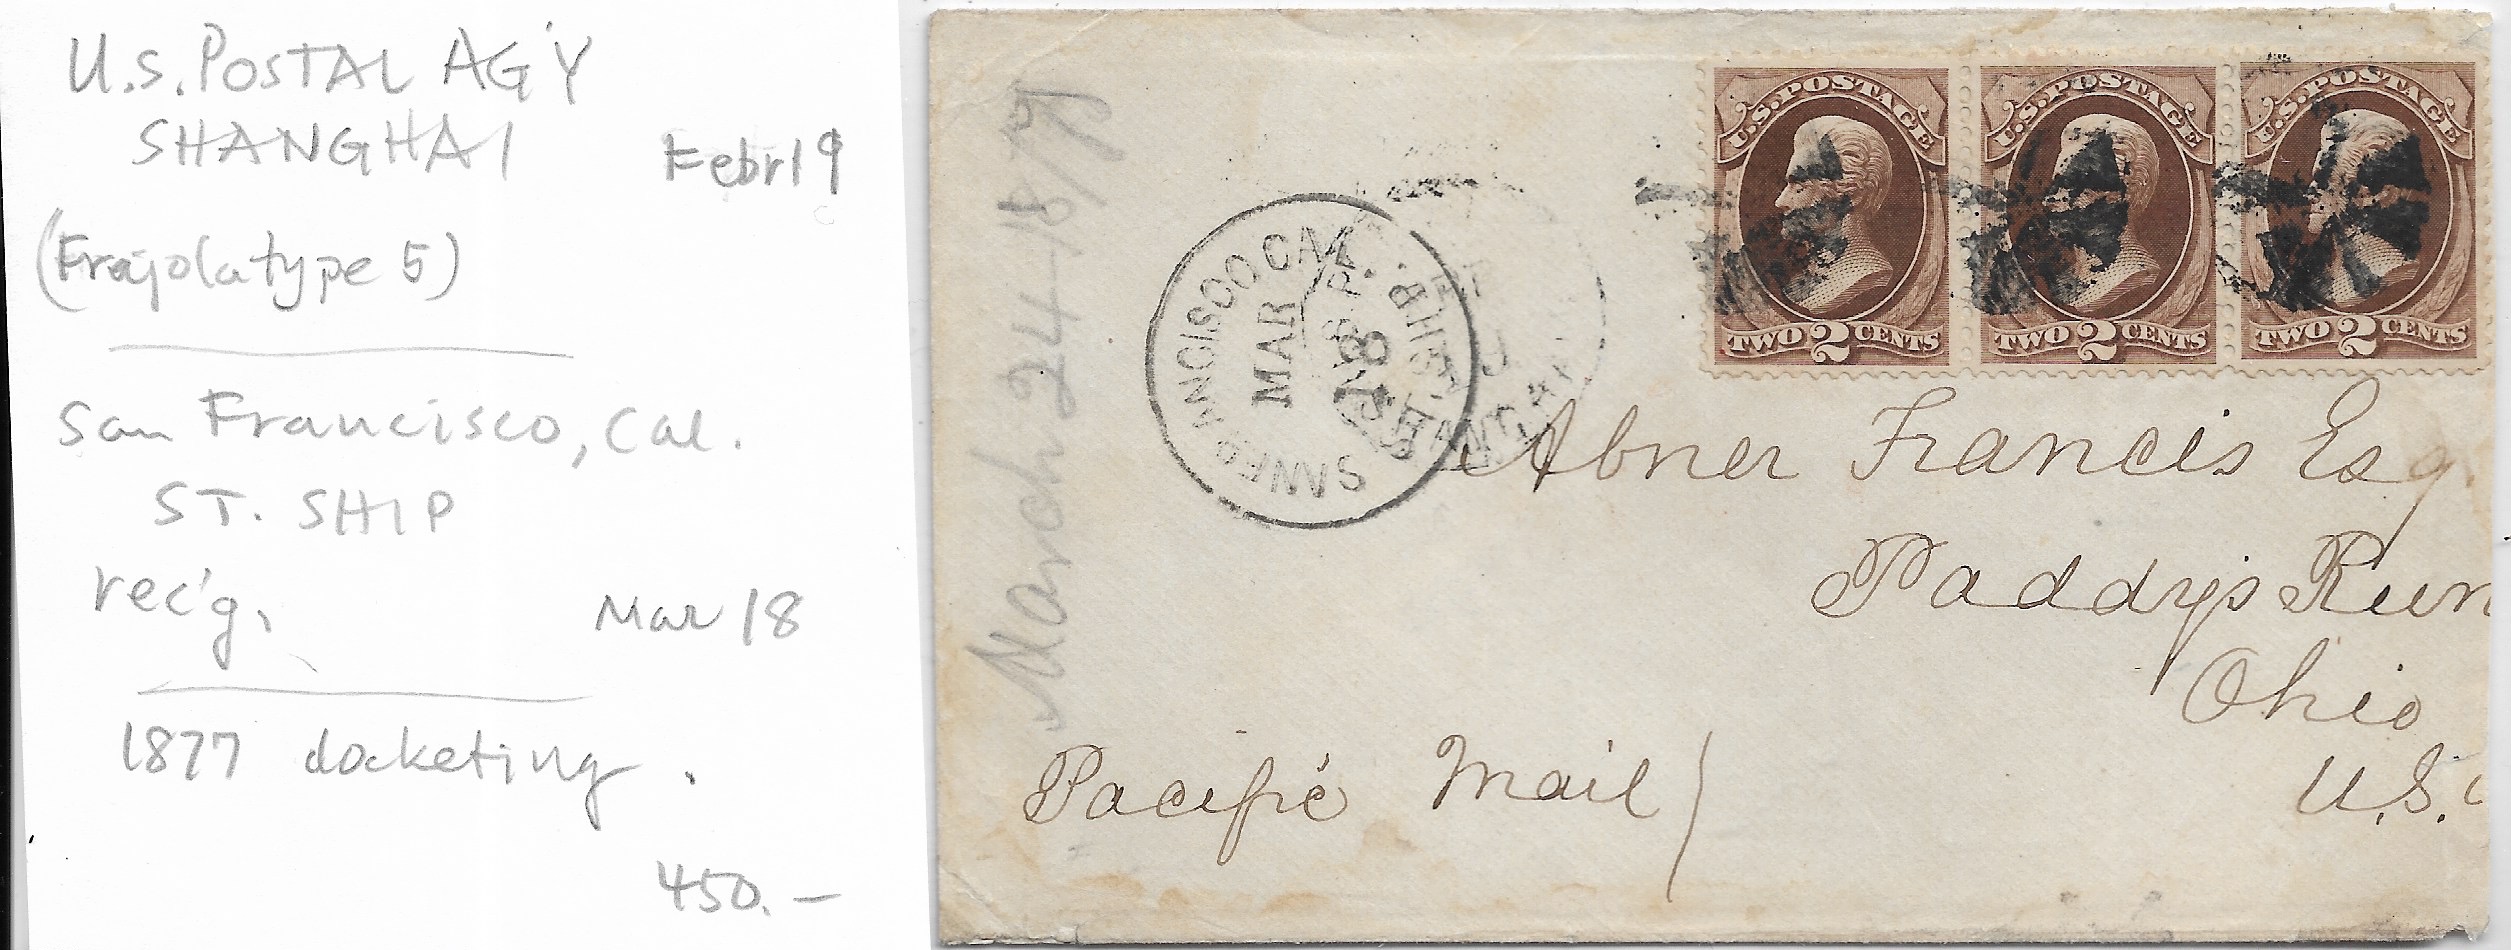 U.S. POSTAL AG'Y
SHANGHAI
Febr 19
(Frajola type 5)
San Francisco, Cal.
ST. SHIP
rec'g.
Mar 18
1877 docketing.
450.—
March 24 18
SAN FRANCISCO CAL
MAR
18
U.S. POSTAGE
TWO 2 CENTS
U.S. POSTAGE
TWO 2 CENTS
U.S. POSTAGE
TWO 2 CENTS
Abner Francis Esq.
Paddy's Run
Ohio
U.S.
Pacific Mail